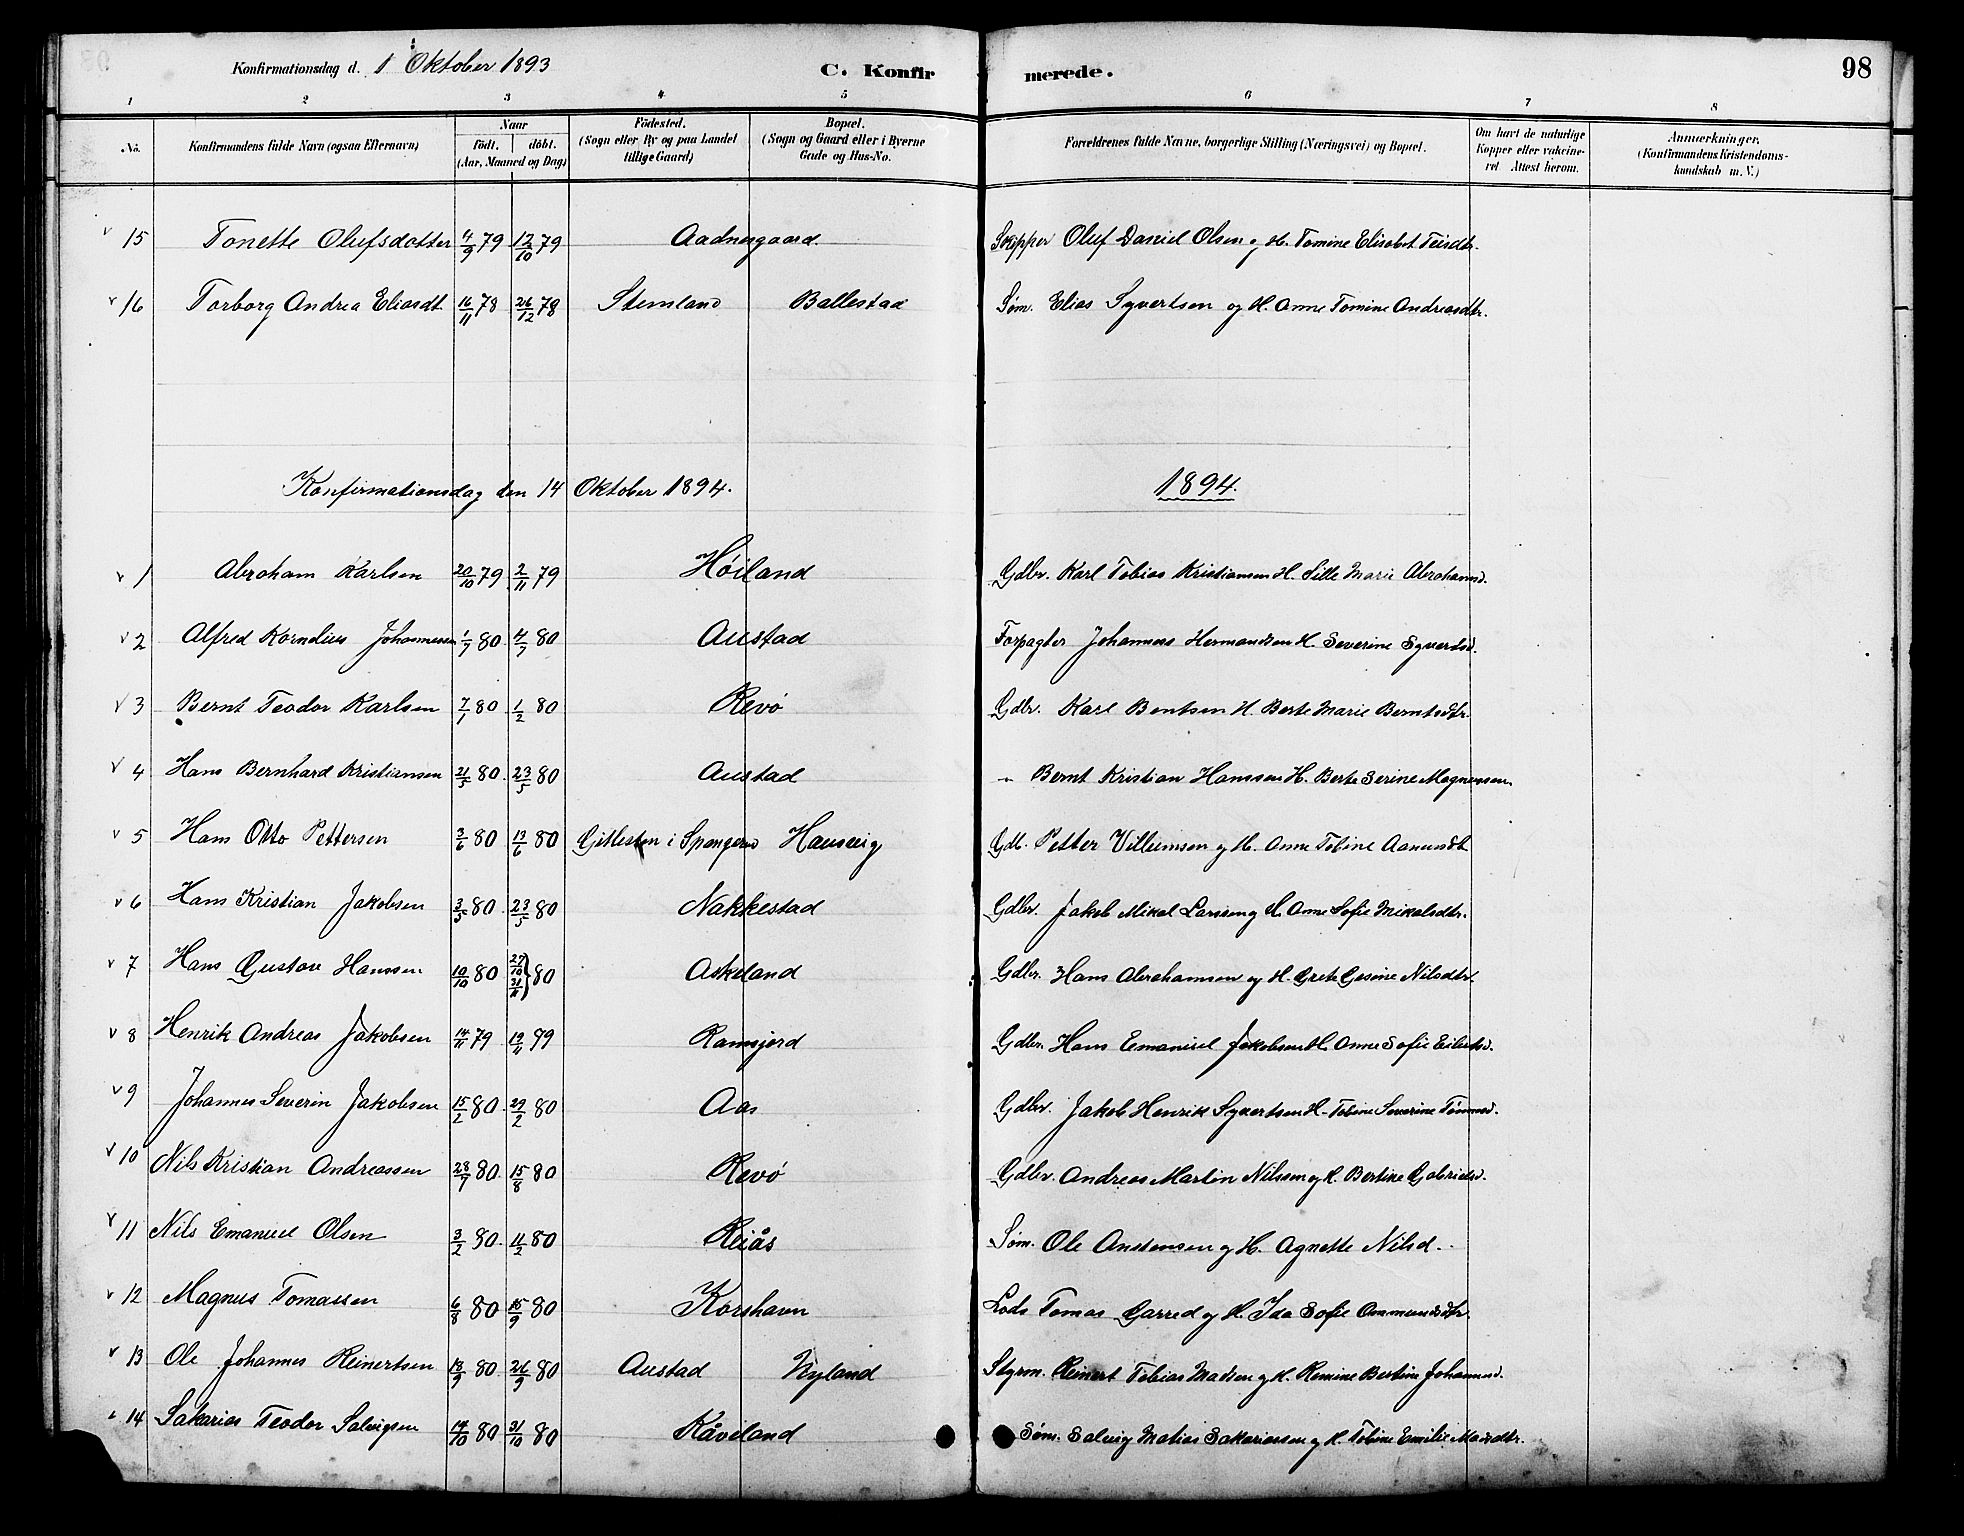 Konfirmationsdag d. 1 Oktober 1893 C. Konfir merede. 98
1 2 3 4 5 6 7 8
No. Konfirmandens fulde Navn (ogsaa Efternavn) Naar født. døbt. (Aar, Maaned og Dag) Fødested. (Sogn eller By og paa Landet tillige Gaard) Bopæl. (Sogn og Gaard eller i Byerne Gade og Hus-No. Forældrenes fulde Navne, borgerlige Stilling (Næringsvei) og Bopæl. Om havt de naturlige Kopper eller vakcineret. Attest herom. Anmærkninger. (Konfirmandens Kristendomskundskab m. V.)
v 15 Tonette Olufsdatter 4/9 79 12/10 79 Aadnesgaard Skipper Oluf Daniel Olsen og H. Tomine Elisabet Teisdtr.
v 16 Torborg Andrea Eliasdt. 16/11 78 26/12 78 Stemland Ballestad Søm. Elias Syvertsen og H. Anne Tomine Andreasdtr.
Konfirmationsdag den 14 Oktober 1894. 1894.
v 1 Abraham Karlsen 20/10 79 2/11 79 Høiland Gdbr. Karl Tobias Kristiansen H. Sille Marie Abrahamsd.
v 2 Alfred Kornelius Johannesen 1/7 80 4/7 80 Austad Forpagter Johannes Hermandsen H. Severine Syvertsd.
v 3 Bernt Teodor Karlsen 7/1 80 1/2 80 Revø Gdbr. Karl Bentsen H. Berte Marie Berntsdtr.
v 4 Hans Bernhard Kristiansen 21/5 80 23/5 80 Austad " Bernt Kristian Hanssen H. Berte Serine Magnussen.
v 5 Hans Otto Pettersen 3/6 80 13/6 80 i Spangereid Hausvig Gdb. Petter Villumsen og H. Anne Tobine Aanensdt
v 6 Hans Kristian Jakobsen 3/5 80 23/5 80 Nakkestad Gdbr. Jakob Mikal Larsen og H. Anne Sofie Mikalsdtr.
v 7 Hans Gustav Hanssen 10/10 80 27/10 21/11 } 80 Askeland Gdbr. Hans Abrahamsen og H. Grete Gesine Nilsdtr.
v 8 Henrik Andreas Jakobsen 14/11 79 19/11 99 Ramsjord Gdbr. Hans Emanuel Jakobsen H. Anne Sofie Eilertsd.
v 9 Johannes Severin Jakobsen 15/2 80 29/2 80 Aas Gdbr. Jakob Henrik Syvertsen H. Tobine Severine Tønnesd.
v 10 Nils Kristian Andreassen 28/7 80 15/8 80 Revø Gdbr. Andreas Martin Nilssen og H. Bertine Gabrielsd.
v 11 Nils Emanuel Olsen 3/2 80 11/2 80 Reiås Søm. Ole Anstensen og H. Agnette Nilsd.
v 12 Magnus Tomassen 6/8 80 15/9 80 Korshavn Lods Tomas Garred og H. Ida Sofie Ommundsdtr.
v 13 Ole Johannes Reinertsen 18/9 80 26/9 80 Austad Nyland Styrm. Reinert Tobias Madsen og H. Remine Bertine Johannesd.
14 Sakarias Teodor Salvigsen 14/10 80 31/10 80 Kåviland Søm. Salvig Matias Sakariassen og H. Tobine Emilie Madsdtr.